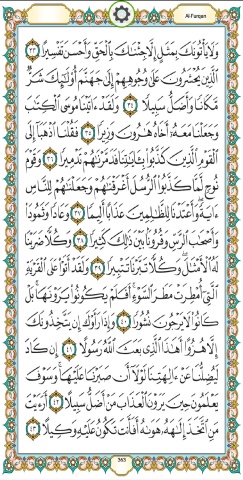 Al-Furqan
وَلَا يَأْتُونَكَ بِمَثَلٍ إِلَّا جِئْنَٰكَ بِٱلْحَقِّ وَأَحْسَنَ تَفْسِيرًا ٣٣
ٱلَّذِينَ يُحْشَرُونَ عَلَىٰ وُجُوهِهِمْ إِلَىٰ جَهَنَّمَ أُو۟لَٰٓئِكَ شَرٌّ
مَّكَانًا وَأَضَلُّ سَبِيلًا ٣٤ وَلَقَدْ ءَاتَيْنَا مُوسَى ٱلْكِتَٰبَ
وَجَعَلْنَا مَعَهُۥٓ أَخَاهُ هَٰرُونَ وَزِيرًا ٣٥ فَقُلْنَا ٱذْهَبَآ إِلَى
ٱلْقَوْمِ ٱلَّذِينَ كَذَّبُوا۟ بِـَٔايَٰتِنَا فَدَمَّرْنَٰهُمْ تَدْمِيرًا ٣٦ وَقَوْمَ
نُوحٍ لَّمَّا كَذَّبُوا۟ ٱلرُّسُلَ أَغْرَقْنَٰهُمْ وَجَعَلْنَٰهُمْ لِلنَّاسِ
ءَايَةً ۖ وَأَعْتَدْنَا لِلظَّٰلِمِينَ عَذَابًا أَلِيمًا ٣٧ وَعَادًا وَثَمُودَا۟
وَأَصْحَٰبَ ٱلرَّسِّ وَقُرُونًۢا بَيْنَ ذَٰلِكَ كَثِيرًا ٣٨ وَكُلًّا ضَرَبْنَا
لَهُ ٱلْأَمْثَٰلَ ۖ وَكُلًّا تَبَّرْنَا تَتْبِيرًا ٣٩ وَلَقَدْ أَتَوْا۟ عَلَى ٱلْقَرْيَةِ
ٱلَّتِىٓ أُمْطِرَتْ مَطَرَ ٱلسَّوْءِ ۚ أَفَلَمْ يَكُونُوا۟ يَرَوْنَهَا ۚ بَلْ
كَانُوا۟ لَا يَرْجُونَ نُشُورًا ٤٠ وَإِذَا رَأَوْكَ إِن يَتَّخِذُونَكَ
إِلَّا هُزُوًا أَهَٰذَا ٱلَّذِى بَعَثَ ٱللَّهُ رَسُولًا ٤١ إِن كَادَ
لَيُضِلُّنَا عَنْ ءَالِهَتِنَا لَوْلَآ أَن صَبَرْنَا عَلَيْهَا ۚ وَسَوْفَ
يَعْلَمُونَ حِينَ يَرَوْنَ ٱلْعَذَابَ مَنْ أَضَلُّ سَبِيلًا ٤٢ أَرَءَيْتَ
مَنِ ٱتَّخَذَ إِلَٰهَهُۥ هَوَىٰهُ أَفَأَنتَ تَكُونُ عَلَيْهِ وَكِيلًا ٤٣
363